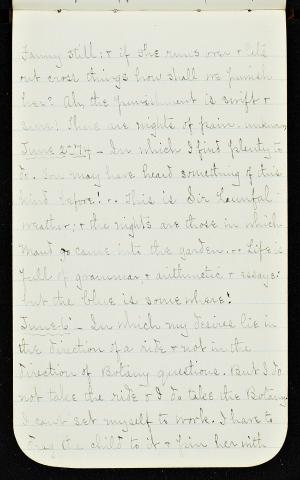 Fanny still: & if she runs over & lets
out cross things how shall we punish
her? Ah, the punishment is swift &
sure! There are nights of pain
June 2nd 74 - In which I find plenty to
do. You may have heard something of this
kind before! .. This is Sir Launfal
weather, & the nights are those in which
Maud came into the garden... Life is
full of grammar, & arithmetic & essays:
but the blue is somewhere!
June 6" - In which my desires lie in
the direction of a ride & not in the
direction of Botany questions. But I do
not take the ride & I do take the Botany.
I can't set myself to work. I have to
drag the child to it & pin her with